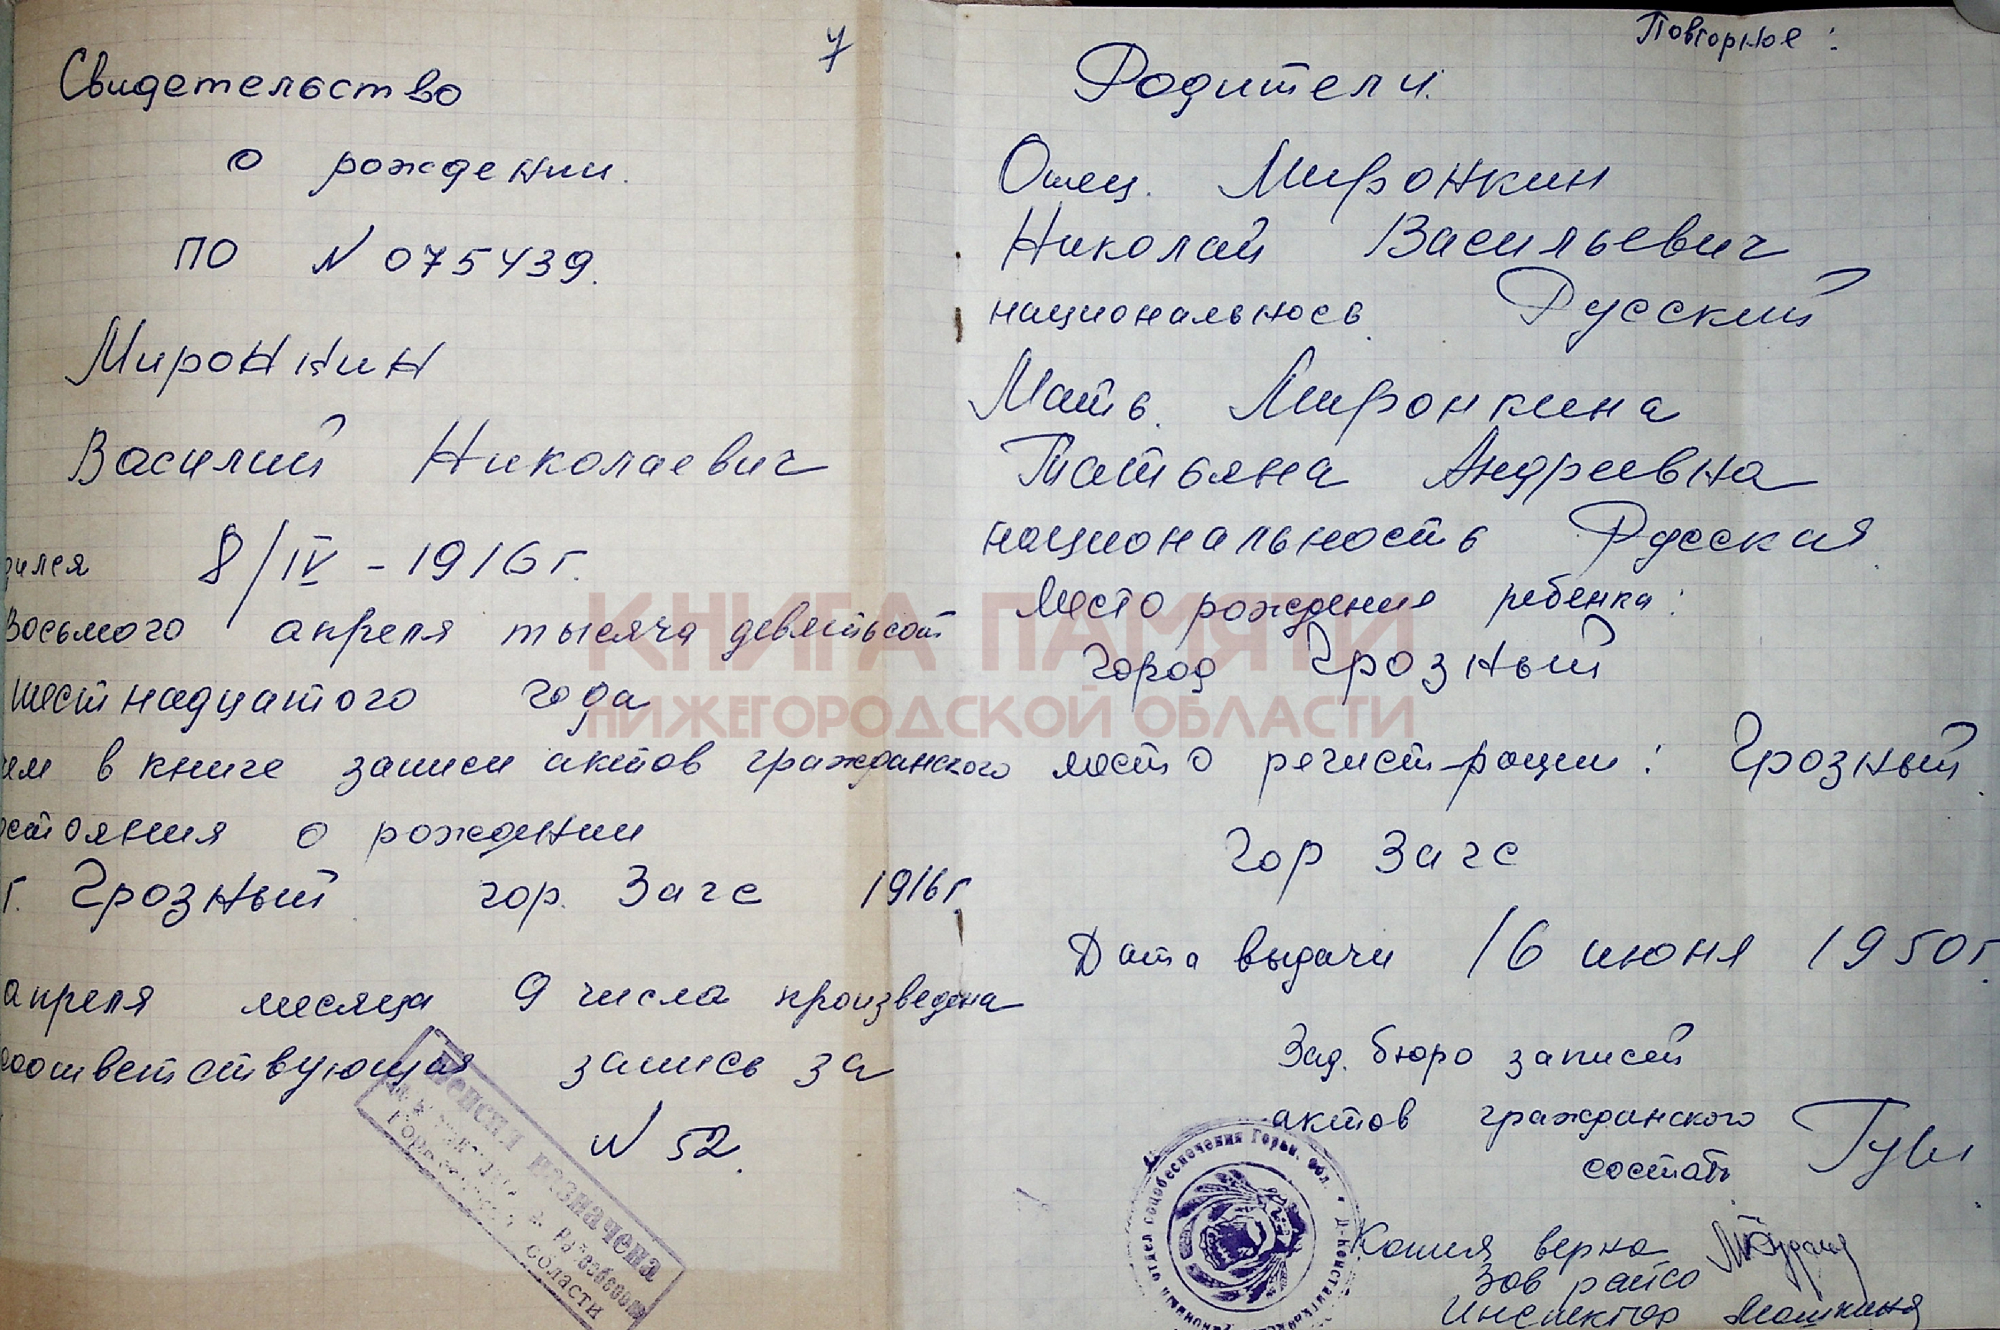 7
Свидетельство
о рождении.
ПО N 075439.
Миронкин
Василий Николаевич
дился 8/IV - 1916 г.
Восьмого апреля тысяча девятьсот
шестнадцатого года
чем в книге записи актов гражданского
остояния о рождении
г. Грозный гор. Загс 1916 г.
апреля месяца 9 числа произведена
соответствующая запись за
N 52.
Пенсия назначена
области
Повторное:
Родители.
Отец. Миронкин
Николай Васильевич
национальнось Русский
Мать. Миронкина
Татьяна Андреевна
национальность Русская
Место рождение ребенка:
город Грозный
место регистрации: Грозный
Гор Загс
Дата выдачи 16 июня 1950 г.
Зад. бюро записей
актов гражданского
состать
отдел соцобеспечения Горьк. обл.
Копия верна
Зав райсо
Инспектор
КНИГА ПАМЯТИ
НИЖЕГОРОДСКОЙ ОБЛАСТИ